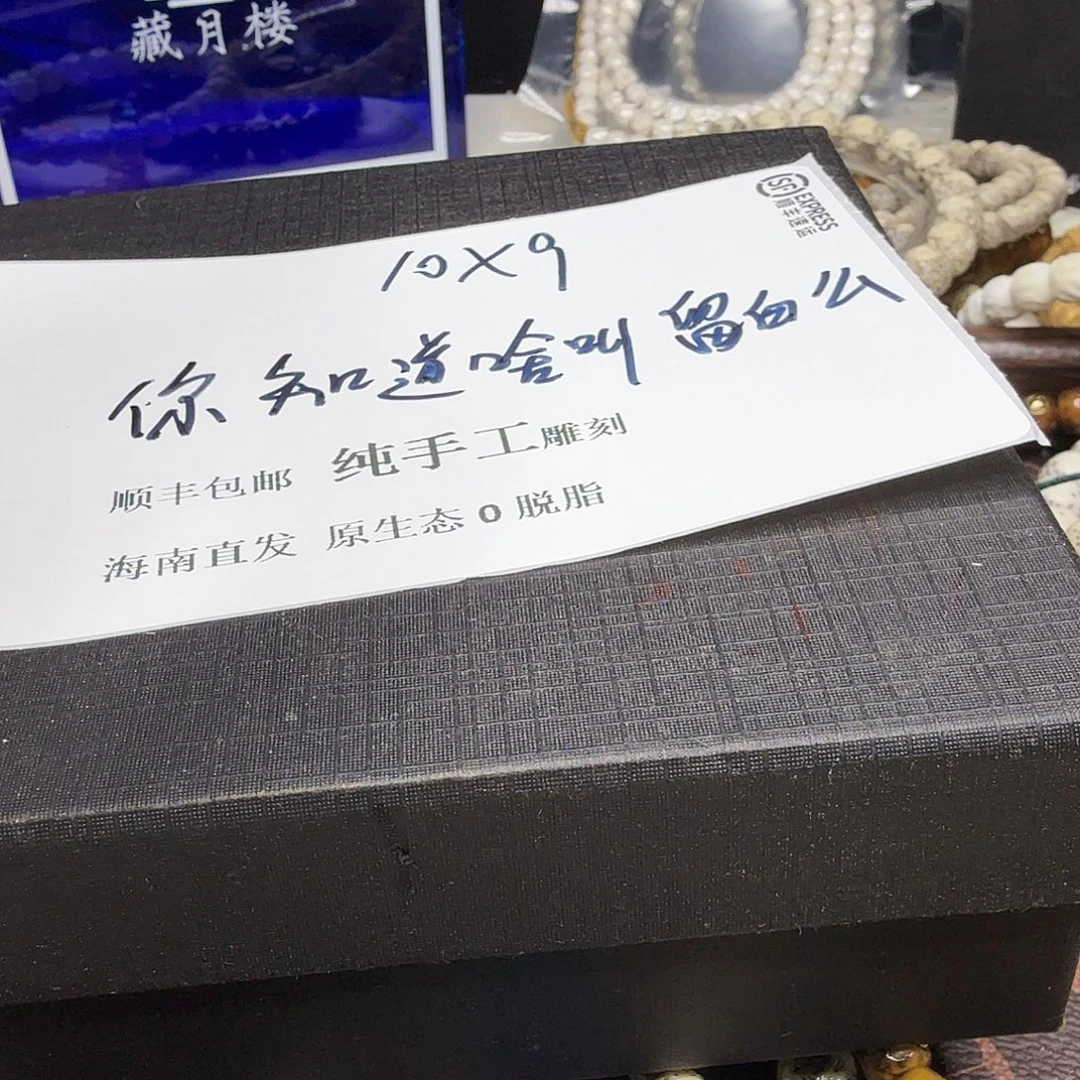 藏月楼
SF EXPRESS
顺丰速运
10X9
你知道啥叫留白么
顺丰包邮 纯手工雕刻
海南直发 原生态0脱脂